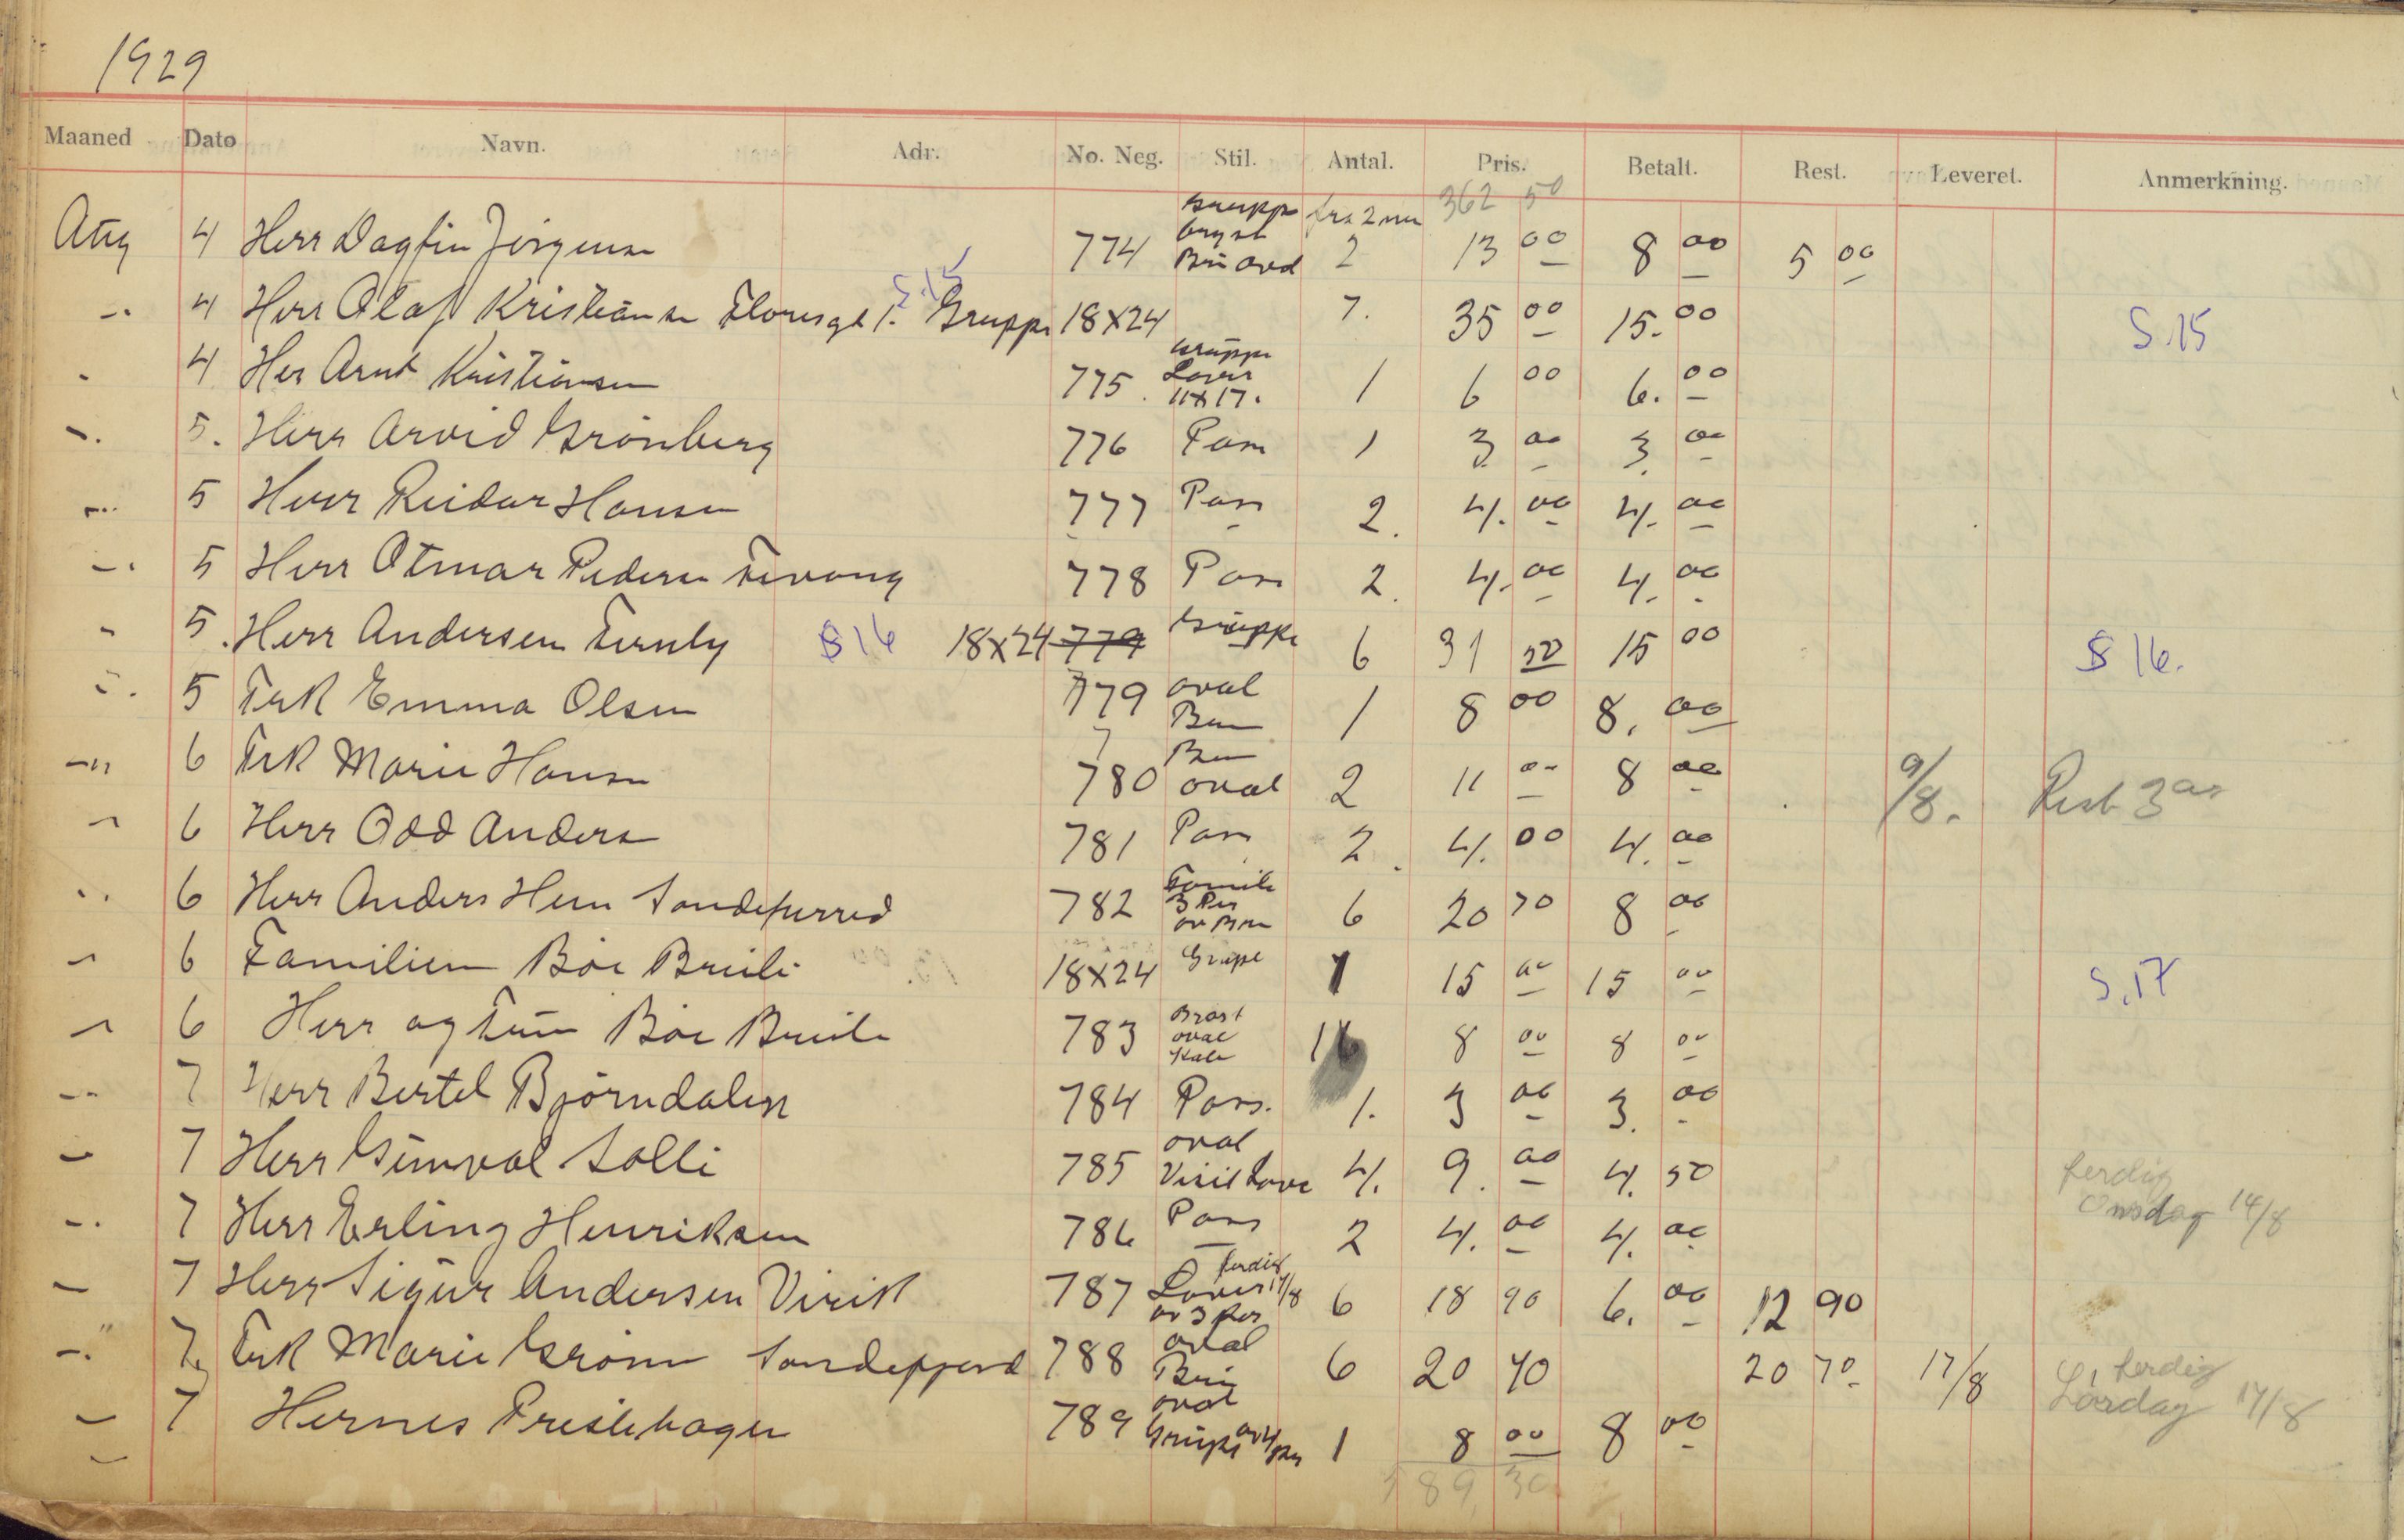 1929
Maaned Dato Navn. Adr. No. Neg. Stil. Antal. Pris. Betalt. Rest. Leveret. Anmerkning.
362 50
Aug 4 Herr Dagfin Jörgensen 774 Gruppe bryst Brun oval fra 2 2 13 00 8 00 5 00
4 Herr Olaf Kristiansen 1. S.15 Gruppe 18x24 7. 35 00 15.00 S.15
4 Her Arnt Kristiansen 775 Gruppe 11x17. 1 6 00 6.00
5. Herr Arvid Grönberg 776 Pass 1 3 00 3. 00
5 Herr Reidar Hansen 777 Pass 2. 4. 00 4. 00
5 Herr Otmar Pedersen 778 Pass 2. 4. 00 4. 00
5. Herr Andersen Fernly S 16 18x24 779 Gruppe 6 31 50 15 00 S 16.
5 Frk Emma Olsen 779 oval Brun 1 8 00 8. 00
6 Frk Marie Hansen 780 Brun oval 2 11 00 8 00 9/8. Rest 3 00
6 Herr Odd Anders 781 Pass 2. 4. 00 4. 00
6 Herr Anders Hem Sandeherred 782 Famili 3 Per 6 20 70 8 00
6 Familien Böe Brieli 18x24 Gruppe 1 15 00 15 00 S.17
6 Herr og Frue Böe 783 Bröst oval 1 8 00 8 00
7 Herr Bertel Björndalen 784 Pass. 1. 3 00 3. 00
7 Herr Gunval Solli 785 oval Visit 4. 9. 00 4. 50 ferdig Onsdag 14/8
7 Herr Erling Henriksen 786 Pass 2 4. 00 4. 00
7 Herr Sigur Andersen Virik 787 ferdig 17/8 av 3 Pos 6 18 90 6. 00 12 90
7 Frk Marie Grönn Sandefjord 788 oval Brun 6 20 70 20 70 17/8 ferdig Lördag 17/8
7 Hernes Preståhagen 789 oval Gruppe av 4 per 1 8 00 8 00
589 30